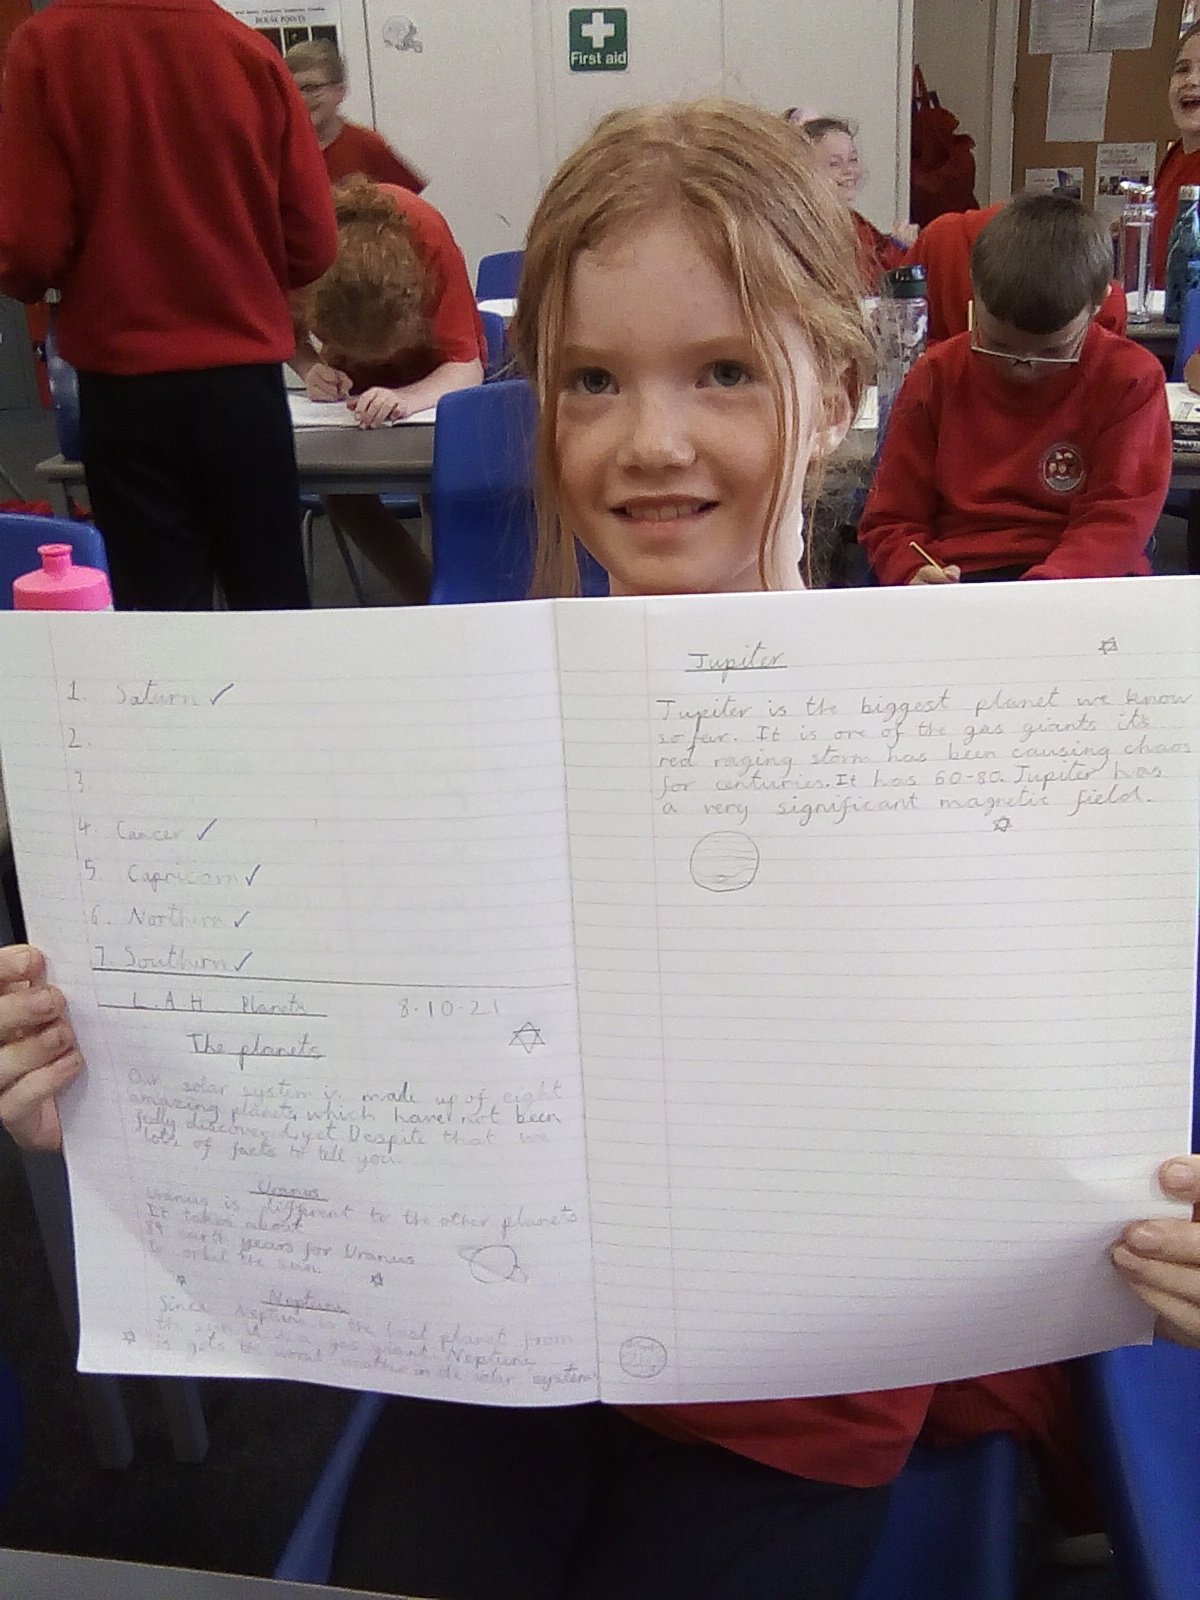 HOUSE POINTS
First aid
1. Saturn ✓
2.
3.
4. Cancer ✓
5. Capricorn ✓
6. Northern ✓
7. Southurn ✓
L.A.H Planets 8.10.21
The planets
Our solar system is made up of eight
amazing planets which have not been
fully discoverd yet. Despite that we
lots of facts to tell you.
Uranus
Uranus is different to the other planets
It takes about
84 earth years for Uranus
to orbit the sun.
Neptune
Since Neptune is the last planet from
the sun it is a gas giant Neptune
is gets the worst weather in the solar system
Jupiter
Jupiter is the biggest planet we know
so far. It is one of the gas giants it's
red raging storm has been causing chaos
for centuries. It has 60-80. Jupiter has
a very significant magnetic field.